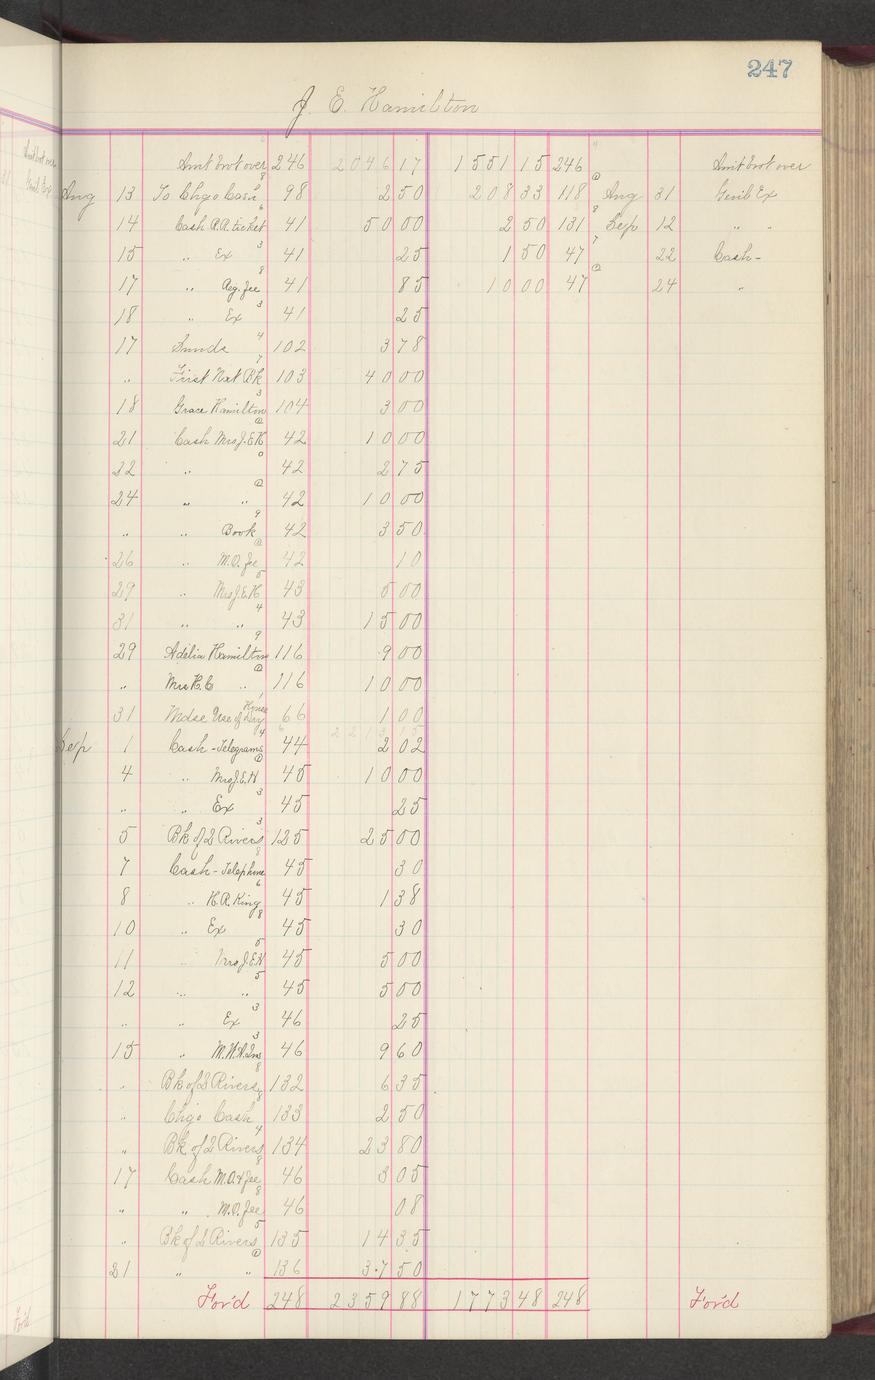 247
J. E. Hamilton
Amt brot over 246 2046 17 1551 15 246 Amt brot over
Aug 13 To Chgo Cash 98 2 50 208 33 118 Aug 31 Genl Ex
14 Cash R.R. ticket 41 50 00 2 50 131 Sep 12 " "
15 " Ex 41 25 1 50 47 22 Cash -
17 " Reg. fee 41 85 10 00 47 24 "
18 " Ex 41 25
17 Sunds 102 3 78
" First Nat Bk 103 40 00
18 Grace Hamilton 104 3 00
21 Cash Mrs J.E.H 42 10 00
22 " 42 2 75
24 " " 42 10 00
" " Book 42 3 50
26 " M.O. fee 42 10
29 " Mrs J.E.H 43 5 00
31 " " 43 15 00
29 Adelia Hamilton 116 9 00
" Mrs H.C " 116 10 00
31 Mdse Use of Dray 66 1 00
Sep 1 Cash - Telegrams 44 2 02
4 " Mrs J.E.H 45 10 00
" " Ex 45 25
5 Bk of 2 Rivers 125 25 00
7 Cash - Telephone 45 30
8 " H.R. King 45 1 38
10 " Ex 45 30
11 " Mrs J.E.H 45 5 00
12 " " 45 5 00
" " Ex 46 25
15 " M.W.A. Ins 46 9 60
" Bk of 2 Rivers 132 6 35
" Chgo Cash 133 2 50
" Bk of 2 Rivers 134 23 80
17 Cash M.O. & fee 46 3 05
" " M.O. fee 46 08
" Bk of 2 Rivers 135 14 35
21 " " 136 37 50
For'd 248 2359 88 1773 48 248 For'd